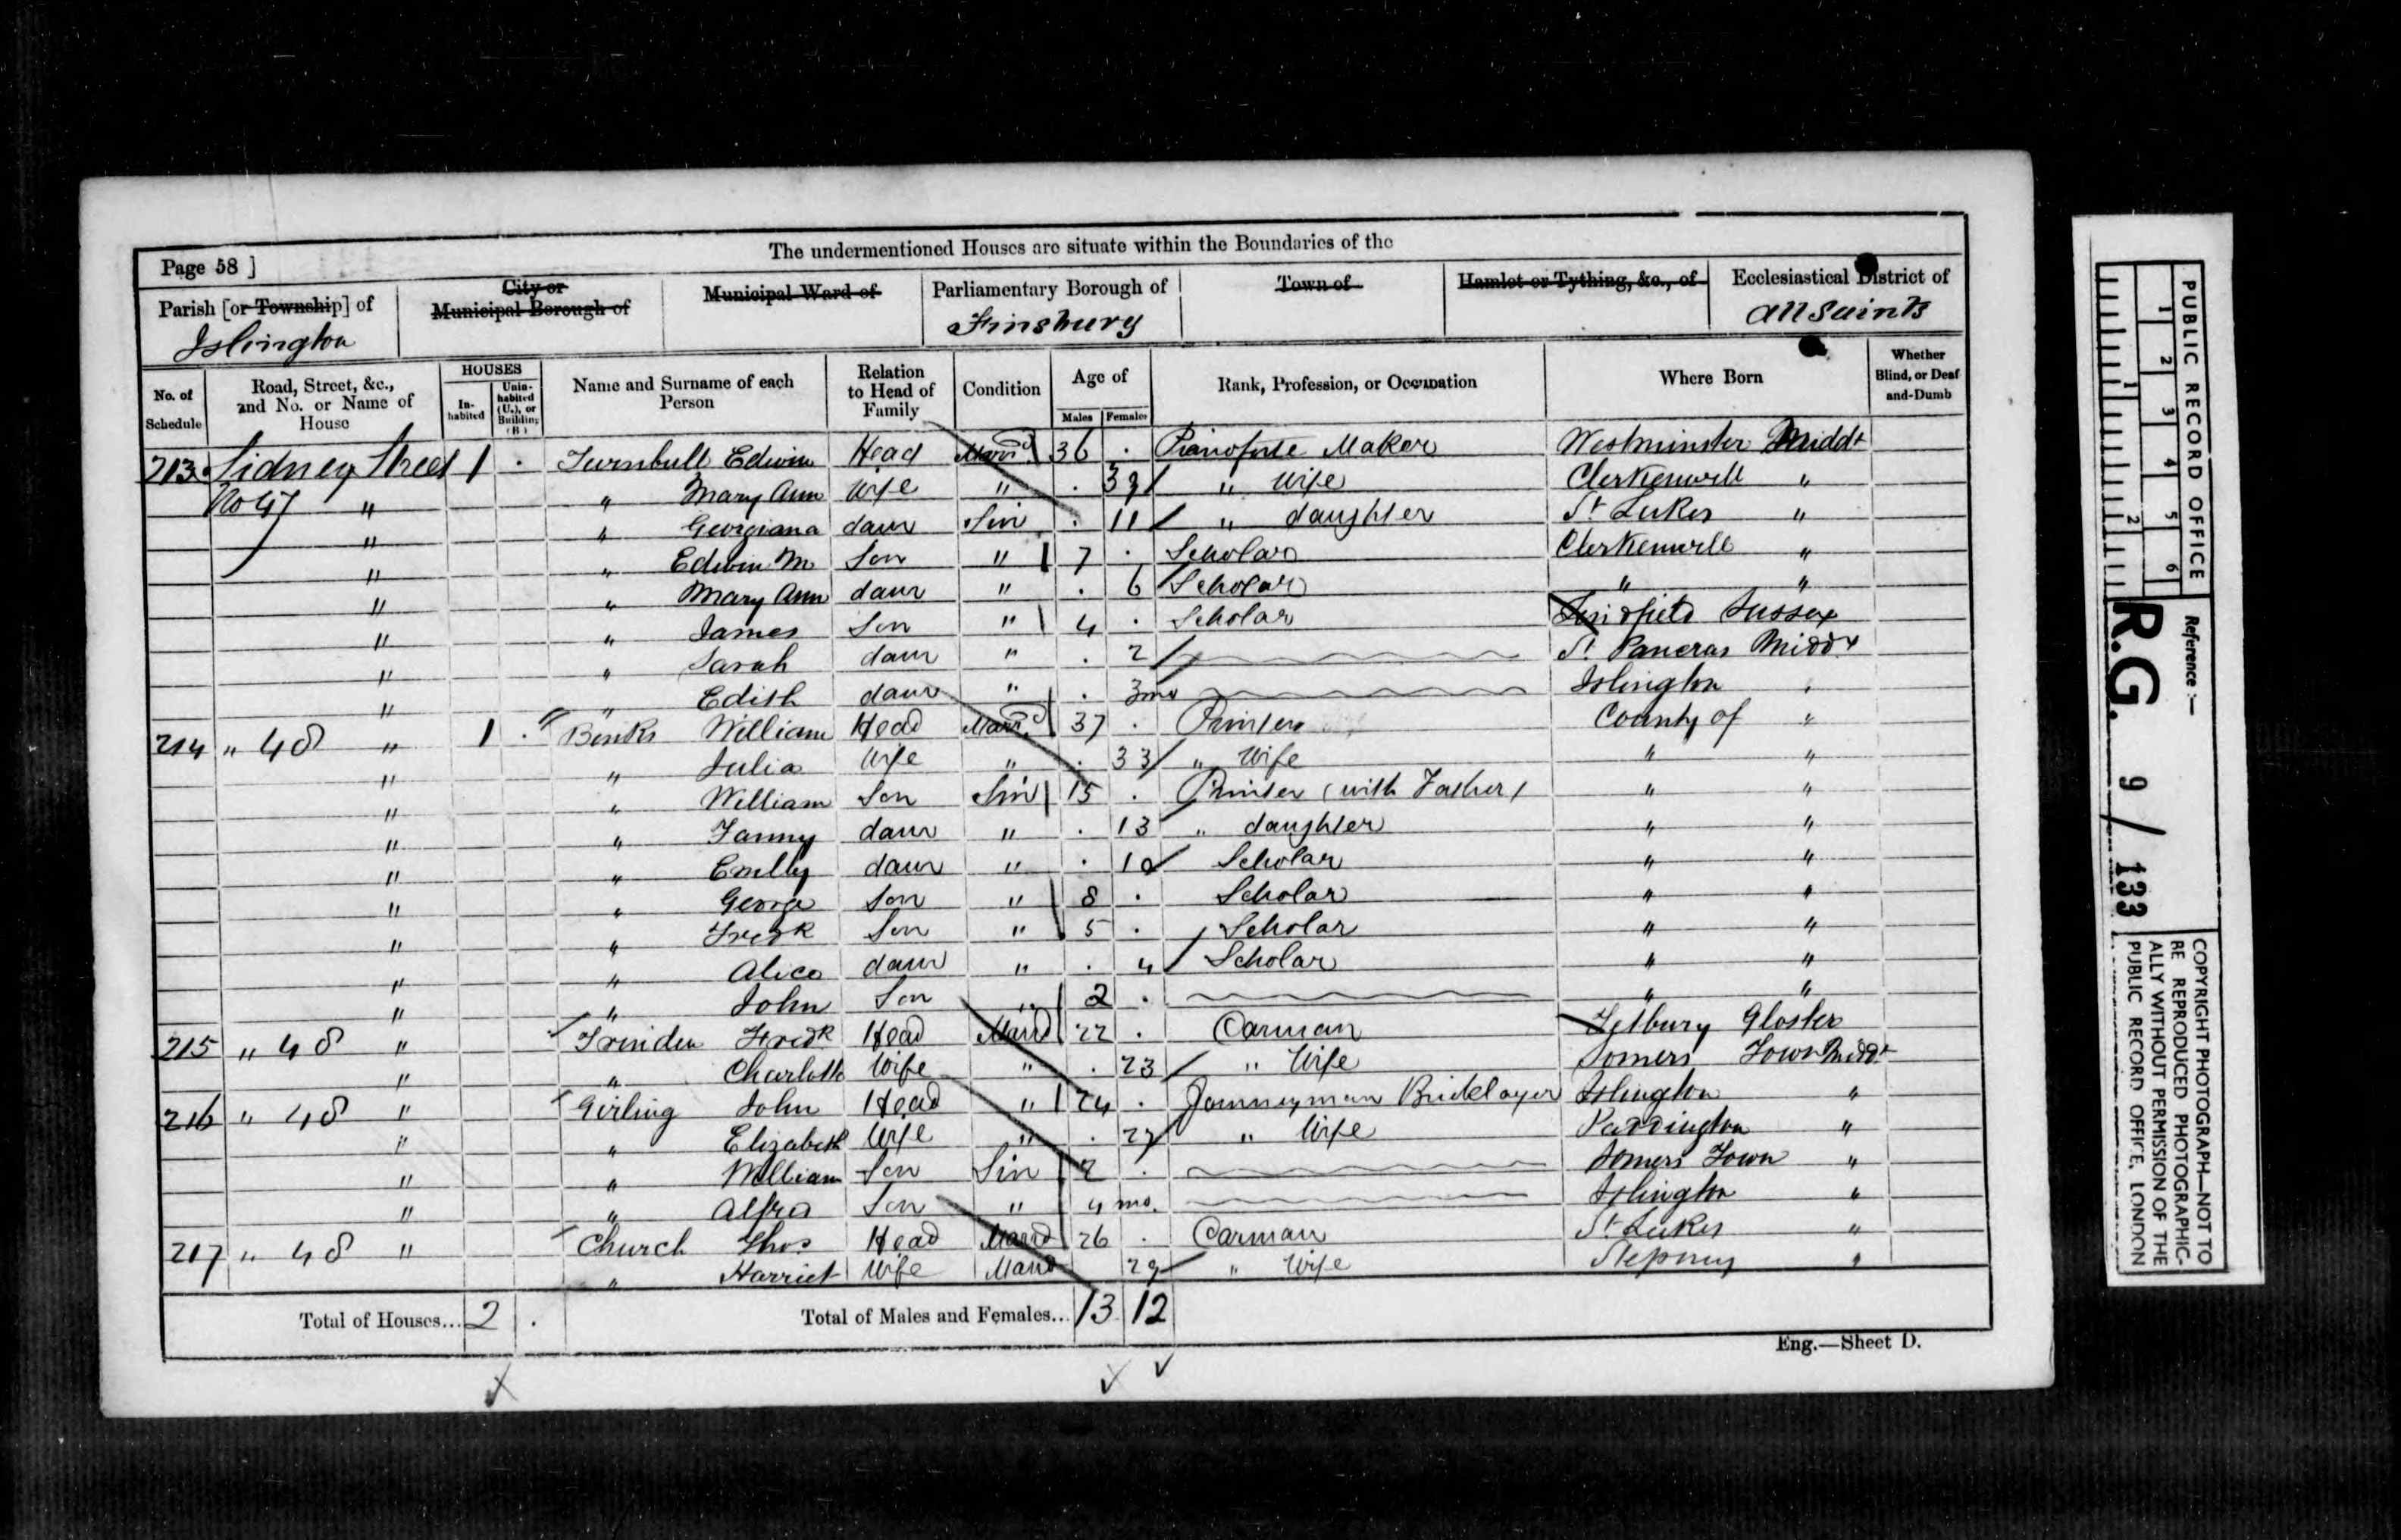 The undermentioned Houses are situate within the Boundaries of the
Page 58 ]
Parish [or Township] of Islington
City or Municipal Borough of
Municipal Ward of
Parliamentary Borough of Finsbury
Town of
Hamlet or Tything, &c., of
Ecclesiastical District of All Saints
No. of Schedule
Road, Street, &c., and No. or Name of House
HOUSES
In-habited
Unin-habited (U.), or Building (B.)
Name and Surname of each Person
Relation to Head of Family
Condition
Age of
Males
Females
Rank, Profession, or Occupation
Where Born
Whether Blind, or Deaf-and-Dumb
213 Sidney Street 1 . Turnbull Edwin Head Marrd 36 . Pianoforte Maker Westminster Middx
No 47 " " Mary Ann Wife " . 39 " Wife Clerkenwell "
" " Georgiana daur Sin . 11 " daughter St Lukes "
" " Edwin M Son " 7 . Scholar Clerkenwell "
" " Mary Ann daur " . 6 Scholar " "
" " James Son " 4 . Scholar Sussex
" " Sarah daur " . 2 St Pancras Middx
" " Edith daur " . 3mo Islington "
214 " 48 " 1 . Binks William Head Marrd 37 . Printer County of "
" " Julia Wife " . 33 " Wife " "
" " William Son Sin 15 . Printer (with Father) " "
" " Fanny daur " . 13 " daughter " "
" " Emily daur " . 10 Scholar " "
" " George Son " 8 . Scholar " "
" " Fredk Son " 5 . Scholar " "
" " Alice daur " . 4 Scholar " "
" " John Son " 2 . " "
215 " 48 " Fredk Head Marrd 22 . Carman Tetbury Gloster
" " Charlotte Wife " . 23 " Wife Somers Town Middx
216 " 48 " Girling John Head " 24 . Journeyman Bricklayer Islington "
" " Elizabeth Wife " . 27 " Wife Paddington "
" " William Son Sin 2 . Somers Town "
" " Alfred Son " 4 mo. Islington "
217 " 48 " Church Thos Head Marrd 26 . Carman St Lukes "
" Harriet Wife Marrd 29 " Wife Stepney "
Total of Houses... 2 .
Total of Males and Females... 13 12
Eng.—Sheet D.
PUBLIC RECORD OFFICE
1 2 3 4 5 6
1 2
Reference :—
R.G. 9 / 133
COPYRIGHT PHOTOGRAPH—NOT TO
BE REPRODUCED PHOTOGRAPHIC-
ALLY WITHOUT PERMISSION OF THE
PUBLIC RECORD OFFICE, LONDON